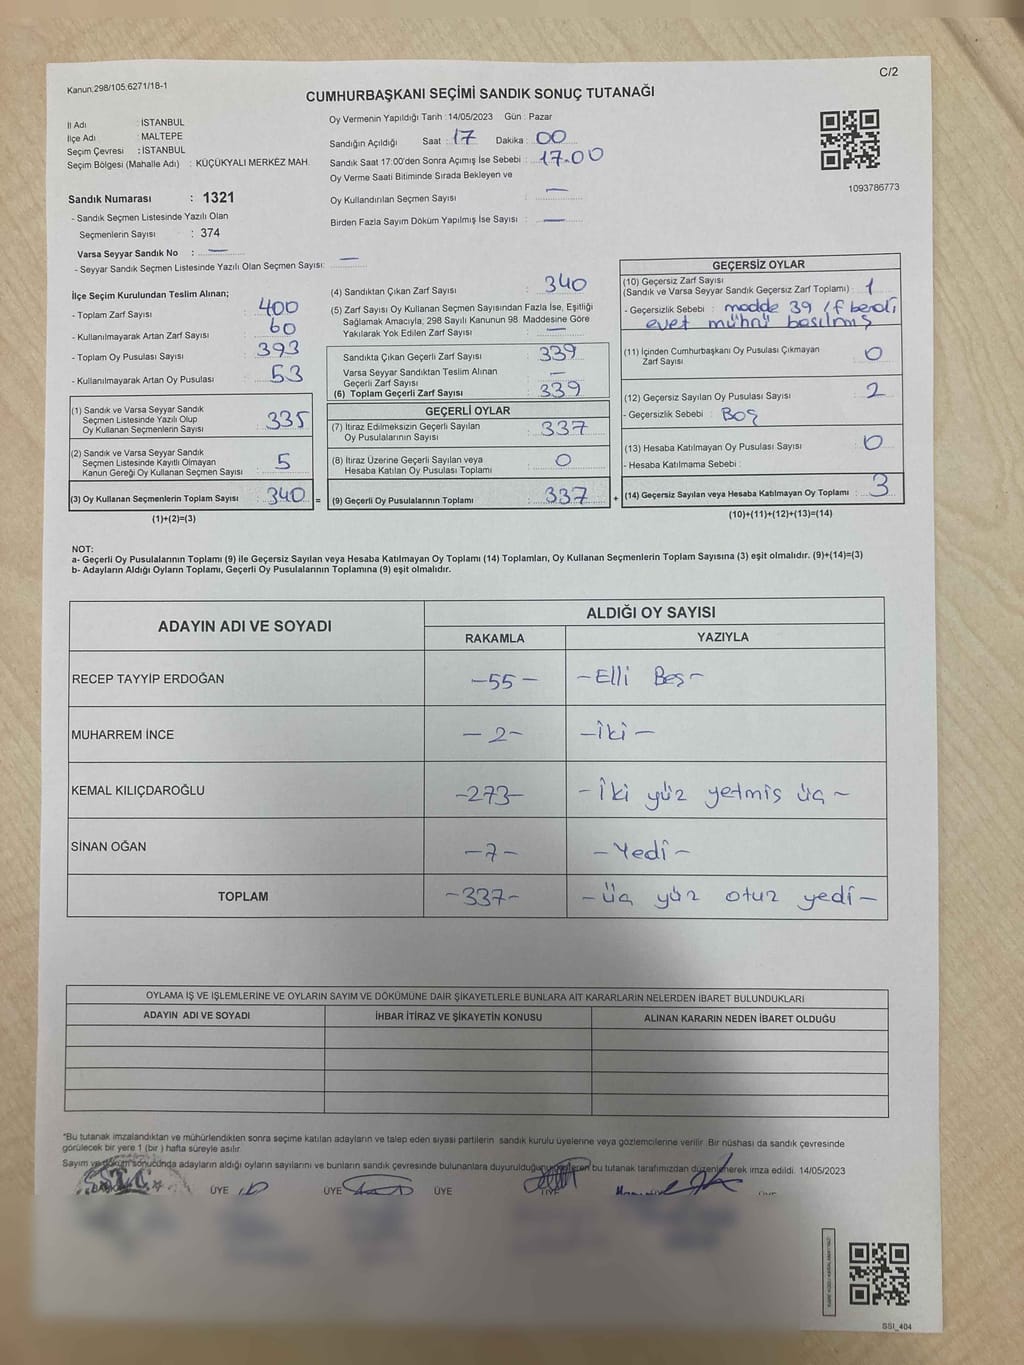 C/2
Kanun.298/105;6271/18-1
CUMHURBAŞKANI SEÇİMİ SANDIK SONUÇ TUTANAĞI
İl Adı : İSTANBUL
İlçe Adı : MALTEPE
Seçim Çevresi : İSTANBUL
Seçim Bölgesi (Mahalle Adı) : KÜÇÜKYALI MERKEZ MAH.
Oy Vermenin Yapıldığı Tarih :14/05/2023 Gün : Pazar
Sandığın Açıldığı Saat : 17 Dakika : 00
Sandık Saat 17:00'den Sonra Açımış İse Sebebi : 17.00
Oy Verme Saati Bitiminde Sırada Bekleyen ve
Oy Kullandırılan Seçmen Sayısı : —
Birden Fazla Sayım Döküm Yapılmış İse Sayısı : —
1093786773
Sandık Numarası : 1321
- Sandık Seçmen Listesinde Yazılı Olan
Seçmenlerin Sayısı : 374
Varsa Seyyar Sandık No : —
- Seyyar Sandık Seçmen Listesinde Yazılı Olan Seçmen Sayısı: —
İlçe Seçim Kurulundan Teslim Alınan;
- Toplam Zarf Sayısı : 400
- Kullanılmayarak Artan Zarf Sayısı : 60
- Toplam Oy Pusulası Sayısı : 393
- Kullanılmayarak Artan Oy Pusulası : 53
(1) Sandık ve Varsa Seyyar Sandık
Seçmen Listesinde Yazılı Olup
Oy Kullanan Seçmenlerin Sayısı : 335
(2) Sandık ve Varsa Seyyar Sandık
Seçmen Listesinde Kayıtlı Olmayan
Kanun Gereği Oy Kullanan Seçmen Sayısı : 5
(3) Oy Kullanan Seçmenlerin Toplam Sayısı : 340 =
(1)+(2)=(3)
(4) Sandıktan Çıkan Zarf Sayısı : 340
(5) Zarf Sayısı Oy Kullanan Seçmen Sayısından Fazla İse, Eşitliği
Sağlamak Amacıyla, 298 Sayılı Kanunun 98. Maddesine Göre
Yakılarak Yok Edilen Zarf Sayısı : —
Sandıkta Çıkan Geçerli Zarf Sayısı : 339
Varsa Seyyar Sandıktan Teslim Alınan
Geçerli Zarf Sayısı : —
(6) Toplam Geçerli Zarf Sayısı : 339
GEÇERLİ OYLAR
(7) İtiraz Edilmeksizin Geçerli Sayılan
Oy Pusulalarının Sayısı : 337
(8) İtiraz Üzerine Geçerli Sayılan veya
Hesaba Katılan Oy Pusulası Toplamı : 0
(9) Geçerli Oy Pusulalarının Toplamı : 337 +
GEÇERSİZ OYLAR
(10) Geçersiz Zarf Sayısı
(Sandık ve Varsa Seyyar Sandık Geçersiz Zarf Toplamı) : 1
- Geçersizlik Sebebi : madde 39 /f bendi
evet mührü basılmış
(11) İçinden Cumhurbaşkanı Oy Pusulası Çıkmayan
Zarf Sayısı : 0
(12) Geçersiz Sayılan Oy Pusulası Sayısı : 2
- Geçersizlik Sebebi : Boş
(13) Hesaba Katılmayan Oy Pusulası Sayısı : 0
- Hesaba Katılmama Sebebi :
(14) Geçersiz Sayılan veya Hesaba Katılmayan Oy Toplamı : 3
(10)+(11)+(12)+(13)=(14)
NOT:
a- Geçerli Oy Pusulalarının Toplamı (9) ile Geçersiz Sayılan veya Hesaba Katılmayan Oy Toplamı (14) Toplamları, Oy Kullanan Seçmenlerin Toplam Sayısına (3) eşit olmalıdır. (9)+(14)=(3)
b- Adayların Aldığı Oyların Toplamı, Geçerli Oy Pusulalarının Toplamına (9) eşit olmalıdır.
ADAYIN ADI VE SOYADI
ALDIĞI OY SAYISI
RAKAMLA YAZIYLA
RECEP TAYYİP ERDOĞAN -55- -Elli Beş-
MUHARREM İNCE -2- -İki-
KEMAL KILIÇDAROĞLU -273- -İki yüz yetmiş üç-
SİNAN OĞAN -7- -Yedi-
TOPLAM -337- -Üç yüz otuz yedi-
OYLAMA İŞ VE İŞLEMLERİNE VE OYLARIN SAYIM VE DÖKÜMÜNE DAİR ŞİKAYETLERLE BUNLARA AİT KARARLARIN NELERDEN İBARET BULUNDUKLARI
ADAYIN ADI VE SOYADI İHBAR İTİRAZ VE ŞİKAYETİN KONUSU ALINAN KARARIN NEDEN İBARET OLDUĞU
*Bu tutanak imzalandıktan ve mühürlendikten sonra seçime katılan adayların ve talep eden siyasi partilerin sandık kurulu üyelerine veya gözlemcilerine verilir. Bir nüshası da sandık çevresinde
görülecek bir yere 1 (bir) hafta süreyle asılır.
Sayım ve döküm sonucunda adayların aldığı oyların sayılarını ve bunların sandık çevresinde bulunanlara duyurulduğunu gösteren bu tutanak tarafımızdan düzenlenerek imza edildi. 14/05/2023
ÜYE ÜYE ÜYE ÜYE
SSI_404